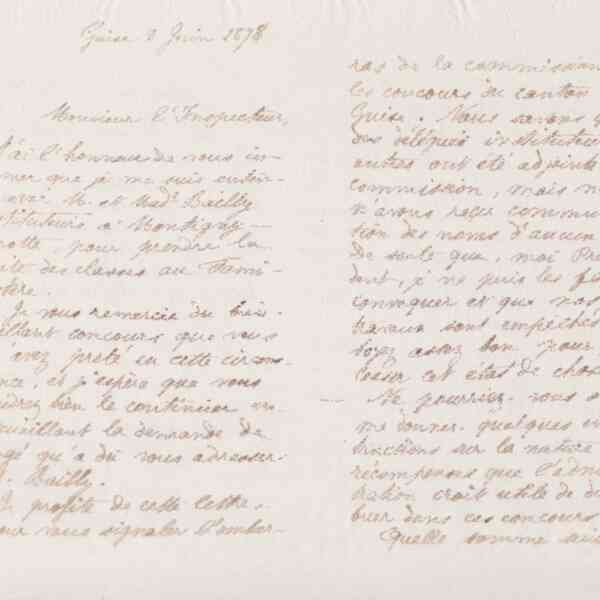 Guise 2 Juin 1878
Monsieur l'Inspecteur,
J'ai l'honneur de vous in-
mer que je me suis enten-
avec M. et Mad. Bailly
stituteurs à Montigny-
rotte, pour prendre la
ite des classes au Fami-
tère.
Je vous remercie du bien-
eillant concours que vous
avez prêté en cette circons-
nce, et j'espère que vous
udrez bien le continuer en
cueillant la demande de
gé qu'a dû vous adresser
. Bailly.
Je profite de cette lettre
our vous signaler l'embar-
ras de la commission
les concours du canton
Guise. Nous savons q
des délégués instituteur
autres ont été adjoints
commission, mais n
n'avons reçu commu
tion des noms d'aucun
De sorte que, moi Pré
dent, je ne puis les f
convoquer et que nos
travaux sont empêchés
soyez assez bon pour
cesser cet état de chos
Ne pourriez-vous a
me donner quelques in
tructions sur la nature
récompenses que l'admi
tration croit utile de di
buer dans ces concours
Quelle somme